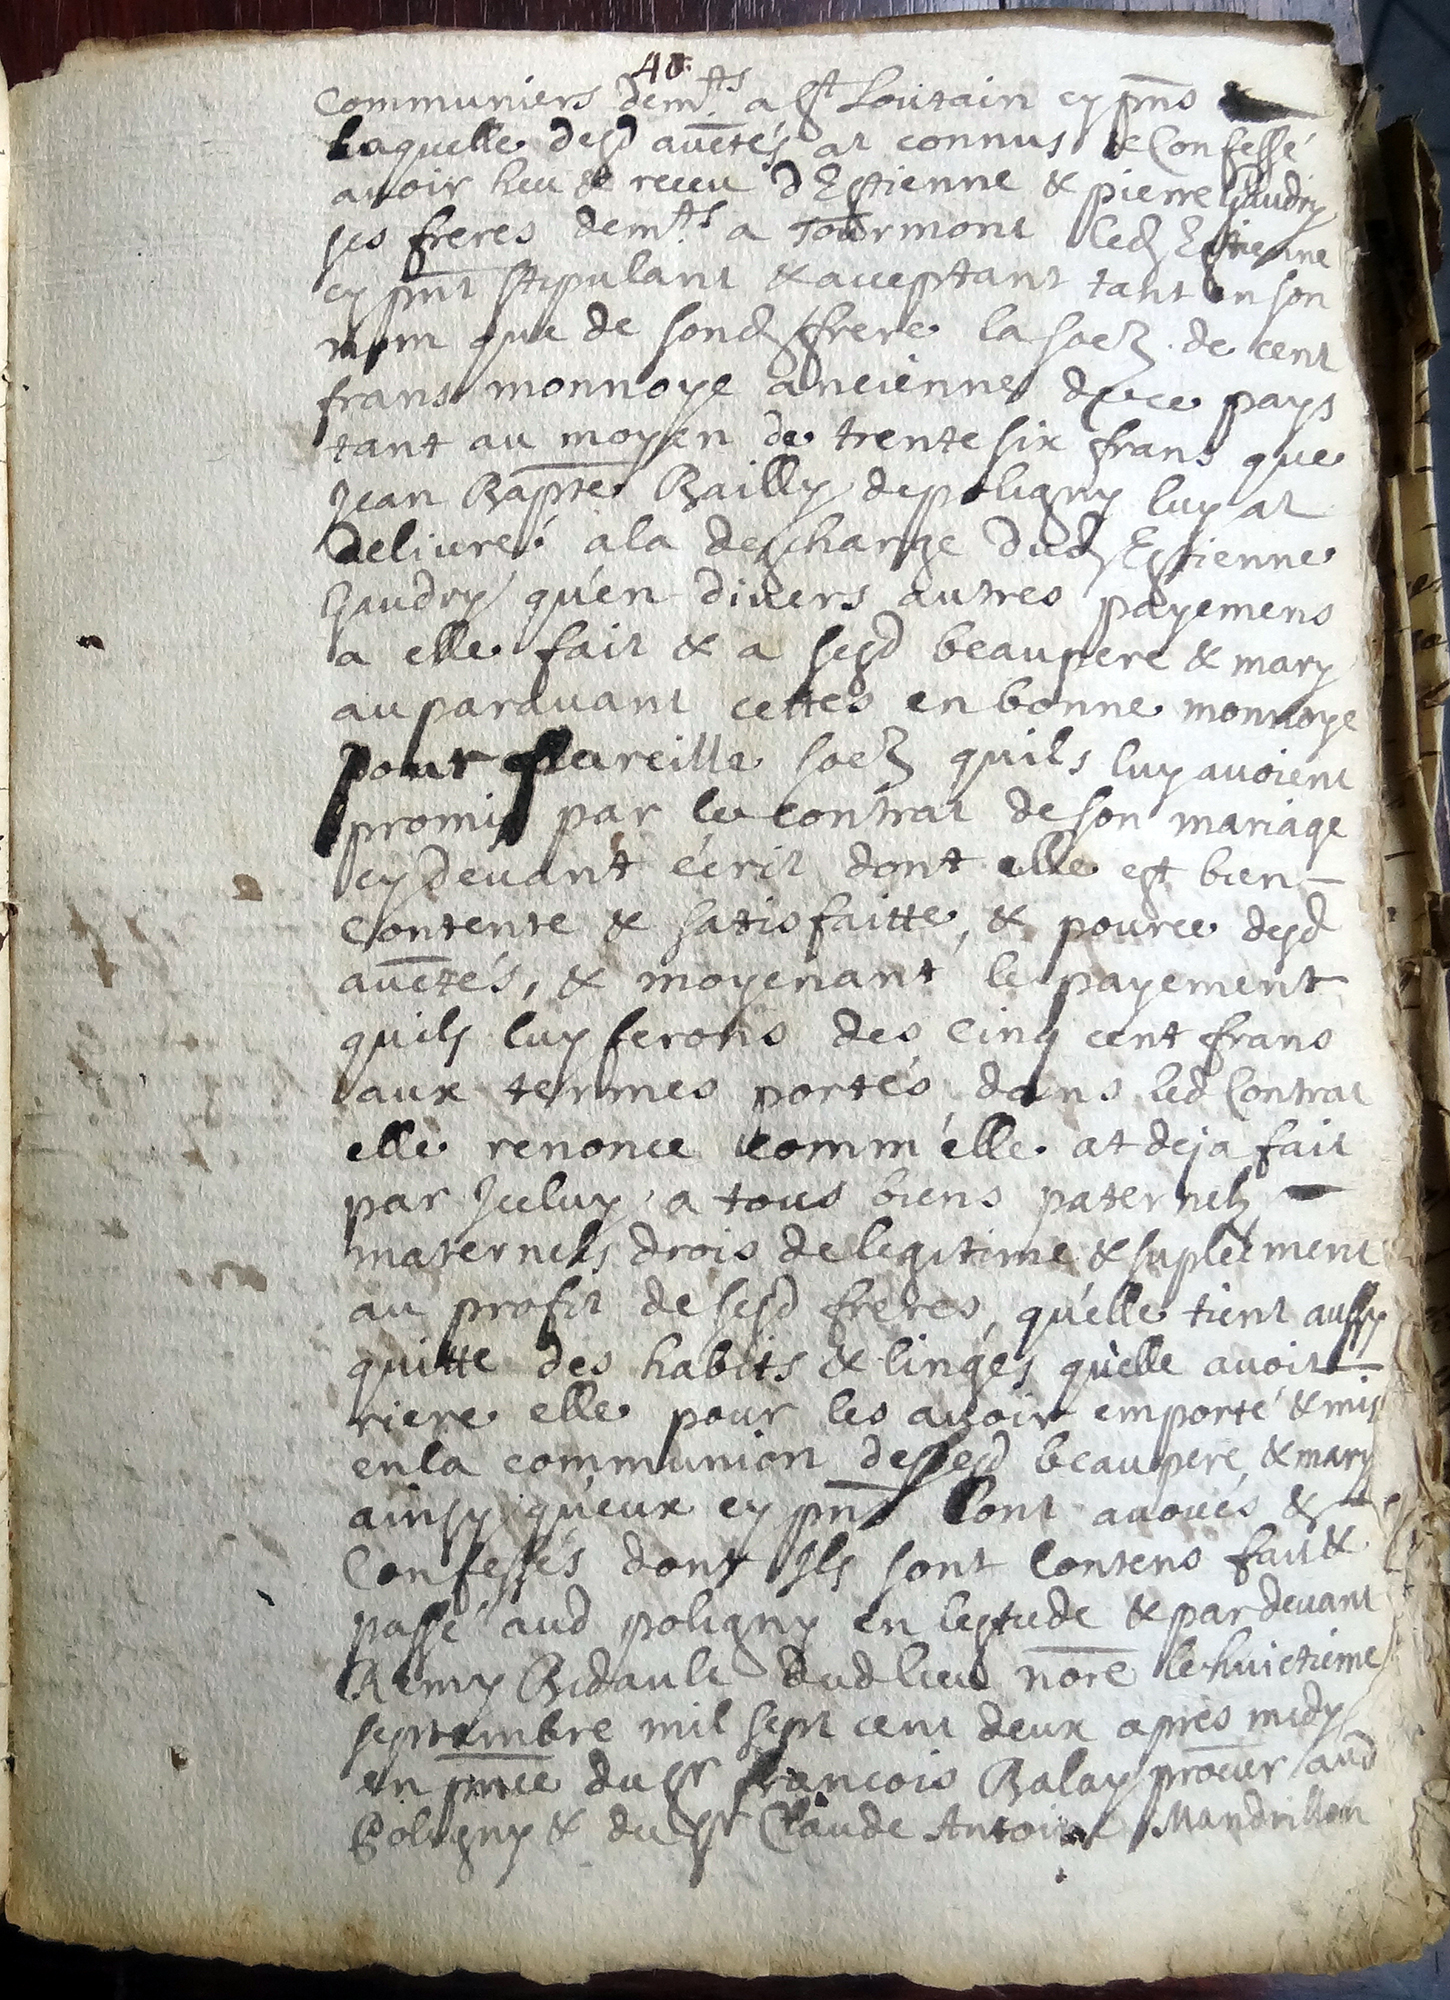 40.
Communiers dem.ts a st Loutain cy pn̄s
Laquelle desd auc̄tés at connus & Confessé
avoir heu & receu d'Estienne & pierre Gaudry
ses freres dem.ts a Tourmont led Estienne
cy pn̄t stipulant & acceptant tant en son
nom que de sond frere la soe de cent
frans monnoye ancienne de ce pays
tant au moyen de trente six frans que
Jean Bap̄te Bailly de poligny luy at
delivré a la descharge dud Estienne
Gaudry qu'en divers autres payemens
a elle fait & a sesd beaupere & mary
auparavant cettes en bonne monnoye
pour pareille soe quils luy avoient
promis par le contrat de son mariage
cy devant écrit dont elle est bien
Contente & satisfaitte, & pource desd
auc̄tés, & moyenant le payement
quils luy ferons des Cinq cent frans
aux termes portés dans led Contrat
elle renonce comm'elle at deja fait
par Iceluy a tous biens paternels
maternels drois de legitime & suplement
au profit de sesd freres, qu'elle tient aussy
quitte des habits & linges qu'elle avoit
riere elle pour les avoir emporté & mis
en la communion desesd beaupere & mary
ainsy qu'eux cy pn̄s l'ont avoués &
Confessés dont Ils sont Contens fait &
passé aud poligny en lestude & par devant
Remy Bidault dud lieu nōre le huictieme
septembre mil sept cent deux apres midy
en pn̄ce du sr francois Balay procur aud
Poligny & du sr Claude Antoine Mandrillon